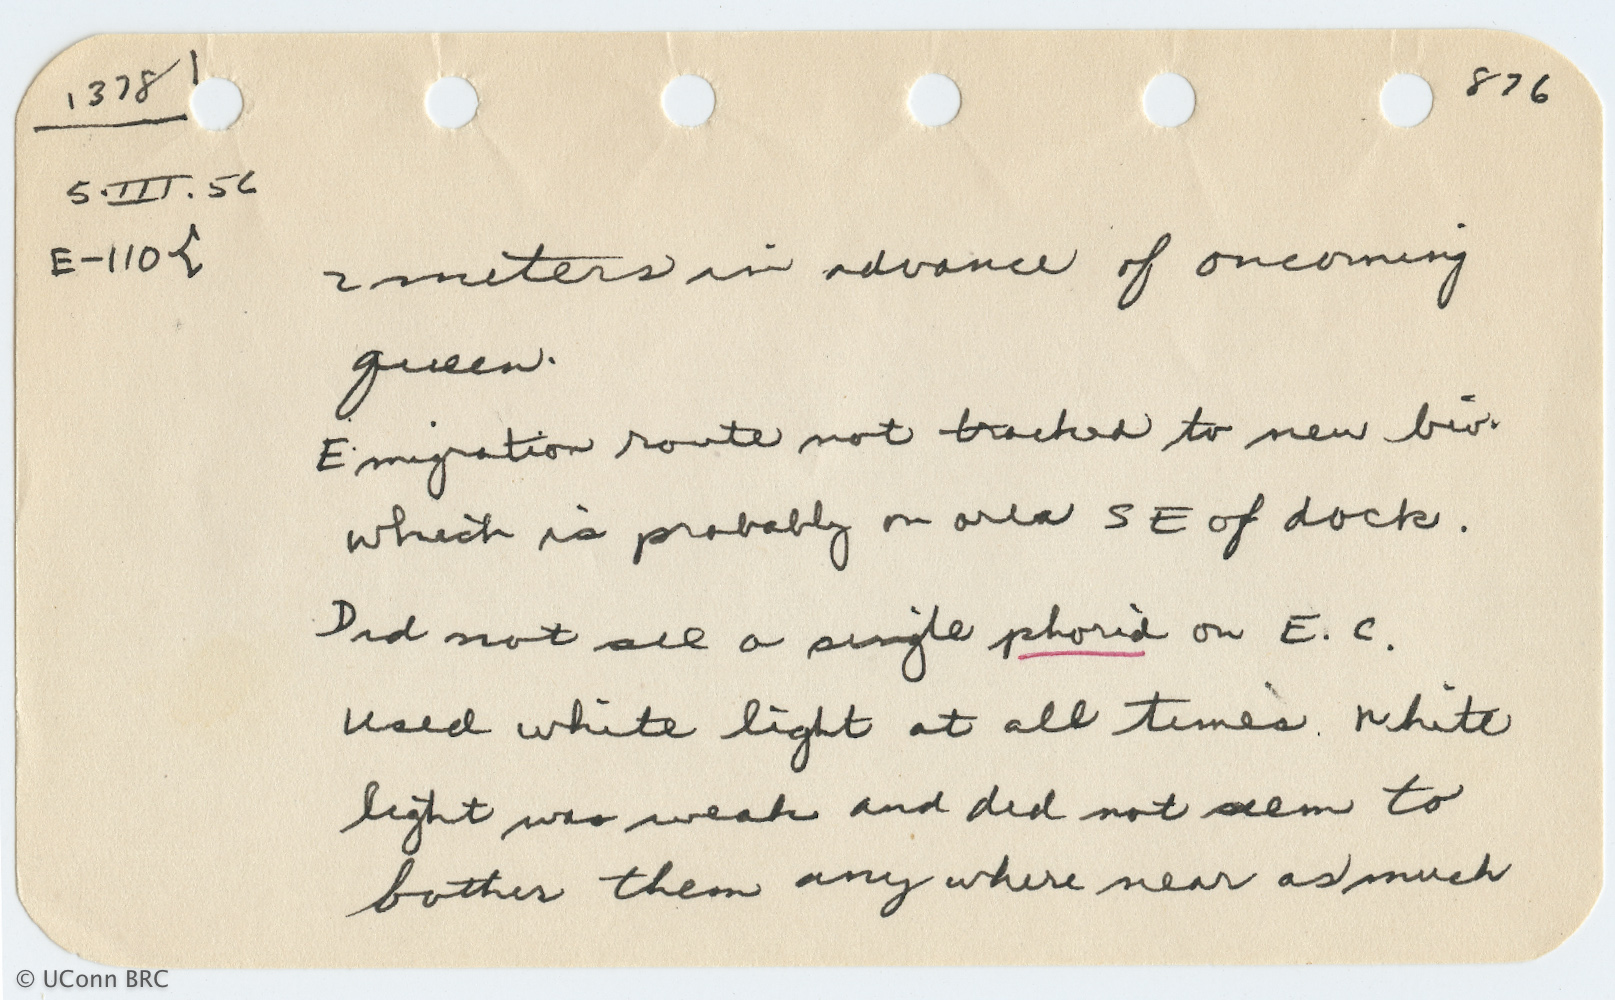 1378 876
5.III.56
E-110{
2 meters in advance of oncoming
queen.
Emigration route not tracked to new biv.
which is probably on area SE of dock.
Did not see a single phorid on E. C.
Used white light at all times. White
light was weak and did not seem to
bother them anywhere near as much
© UConn BRC